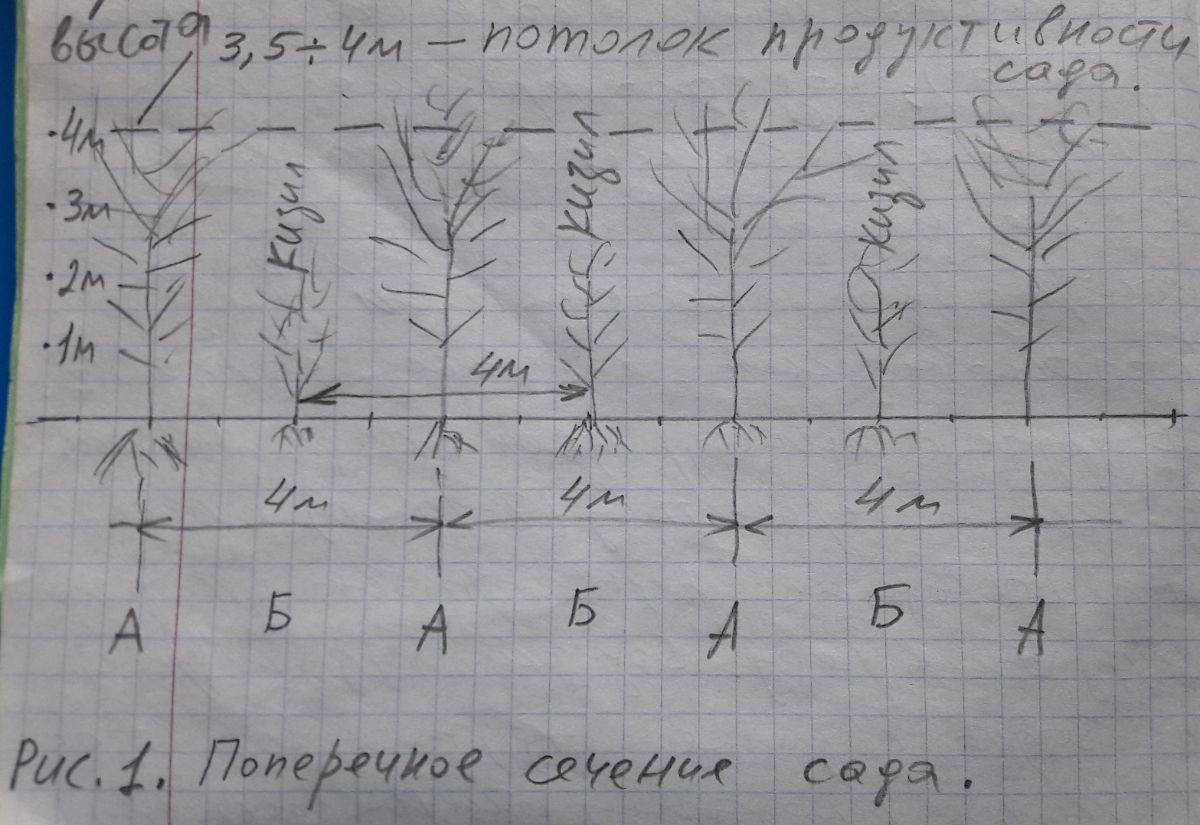 высота 3,5÷4м — потолок продуктивности
сада.
·4м
·3м
·2м
·1м
кизил
кизил
кизил
4м
4м 4м 4м
А Б А Б А Б А
Рис. 1. Поперечное сечение сада.